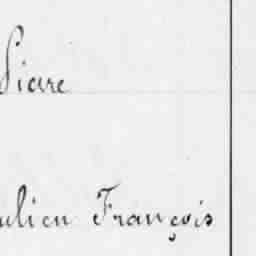 Piare
ulien François